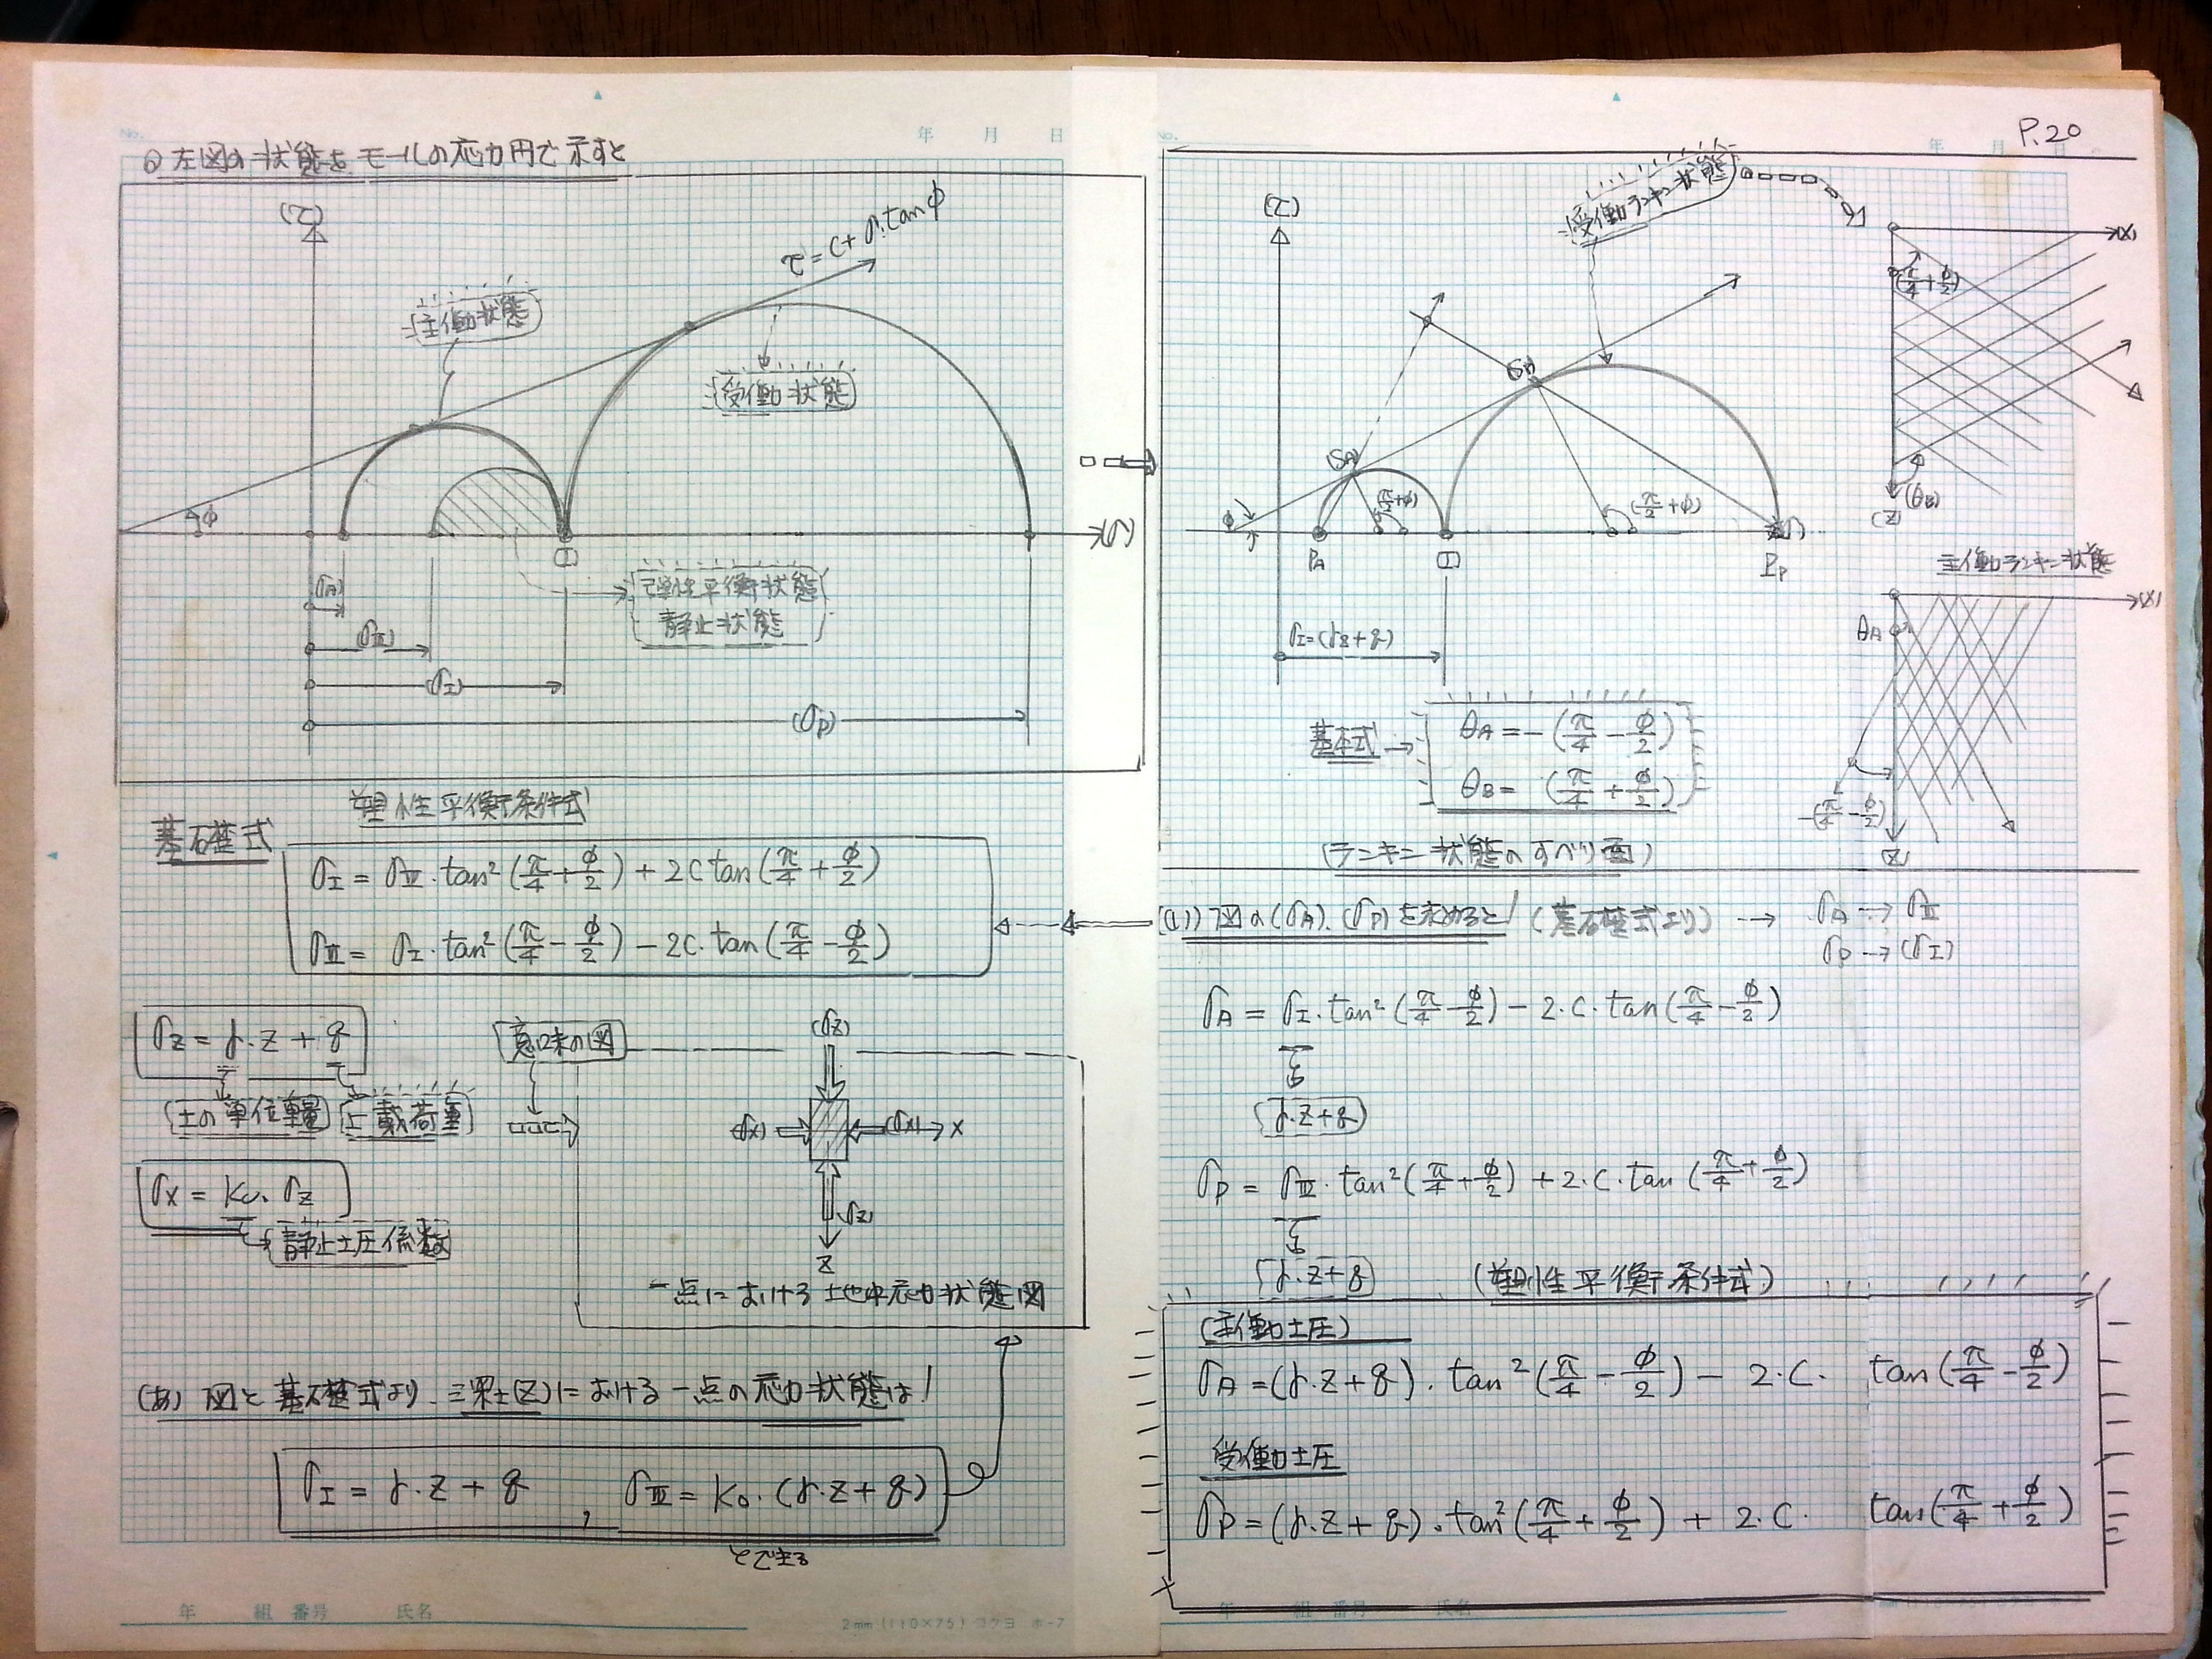 No. 年 月 日
◎左図の状態をモールの応力円で示すと
(τ)
τ = C + σ.tanφ
主働状態
受働状態
φ
(σ)
I
(σA)
弾性平衡状態
静止状態
(σⅢ)
(σI)
(σP)
塑性平衡条件式
基礎式
σI = σⅢ・tan²(π/4 + φ/2) + 2C tan(π/4 + φ/2)
σⅢ = σI・tan²(π/4 − φ/2) − 2C・tan(π/4 − φ/2)
σz = γ・z + q
土の単位重量
上載荷重
σx = K₀・σz
静止土圧係数
意味の図
(σz)
(σx)
(σx) X
(σz)
Z
一点における地中応力状態図
(あ) 図と基礎式より、深さ(Z)における一点の応力状態は!
σI = γ・z + q , σⅢ = K₀・(γ・z + q)
とできる
年 組 番号 氏名
2mm (110×75) コクヨ ホ-7
No. 年 月 日
P.20
(τ)
受働ランキン状態
(SB)
(SA)
φ
(π/2+φ)
(π/2+φ)
PA
I
PP
σI=(γz+q)
(X)
(π/4+φ/2)
(θB)
(Z)
主働ランキン状態
(X)
θA
−(π/4−φ/2)
(Z)
基本式→
θA = −(π/4 − φ/2)
θB = (π/4 + φ/2)
(ランキン状態のすべり面)
(い) 図の(σA)、(σP)を求めると! (基礎式より) → σA → σⅢ
σP → (σI)
σA = σI・tan²(π/4 − φ/2) − 2・C・tan(π/4 − φ/2)
γ・z+q
σP = σⅢ・tan²(π/4 + φ/2) + 2・C・tan(π/4 + φ/2)
γ・z+q
(塑性平衡条件式)
(主働土圧)
σA = (γ・z + q)・tan²(π/4 − φ/2) − 2・C・ tan(π/4 − φ/2)
受働土圧
σP = (γ・z + q)・tan²(π/4 + φ/2) + 2・C・ tan(π/4 + φ/2)
年 組 番号 氏名